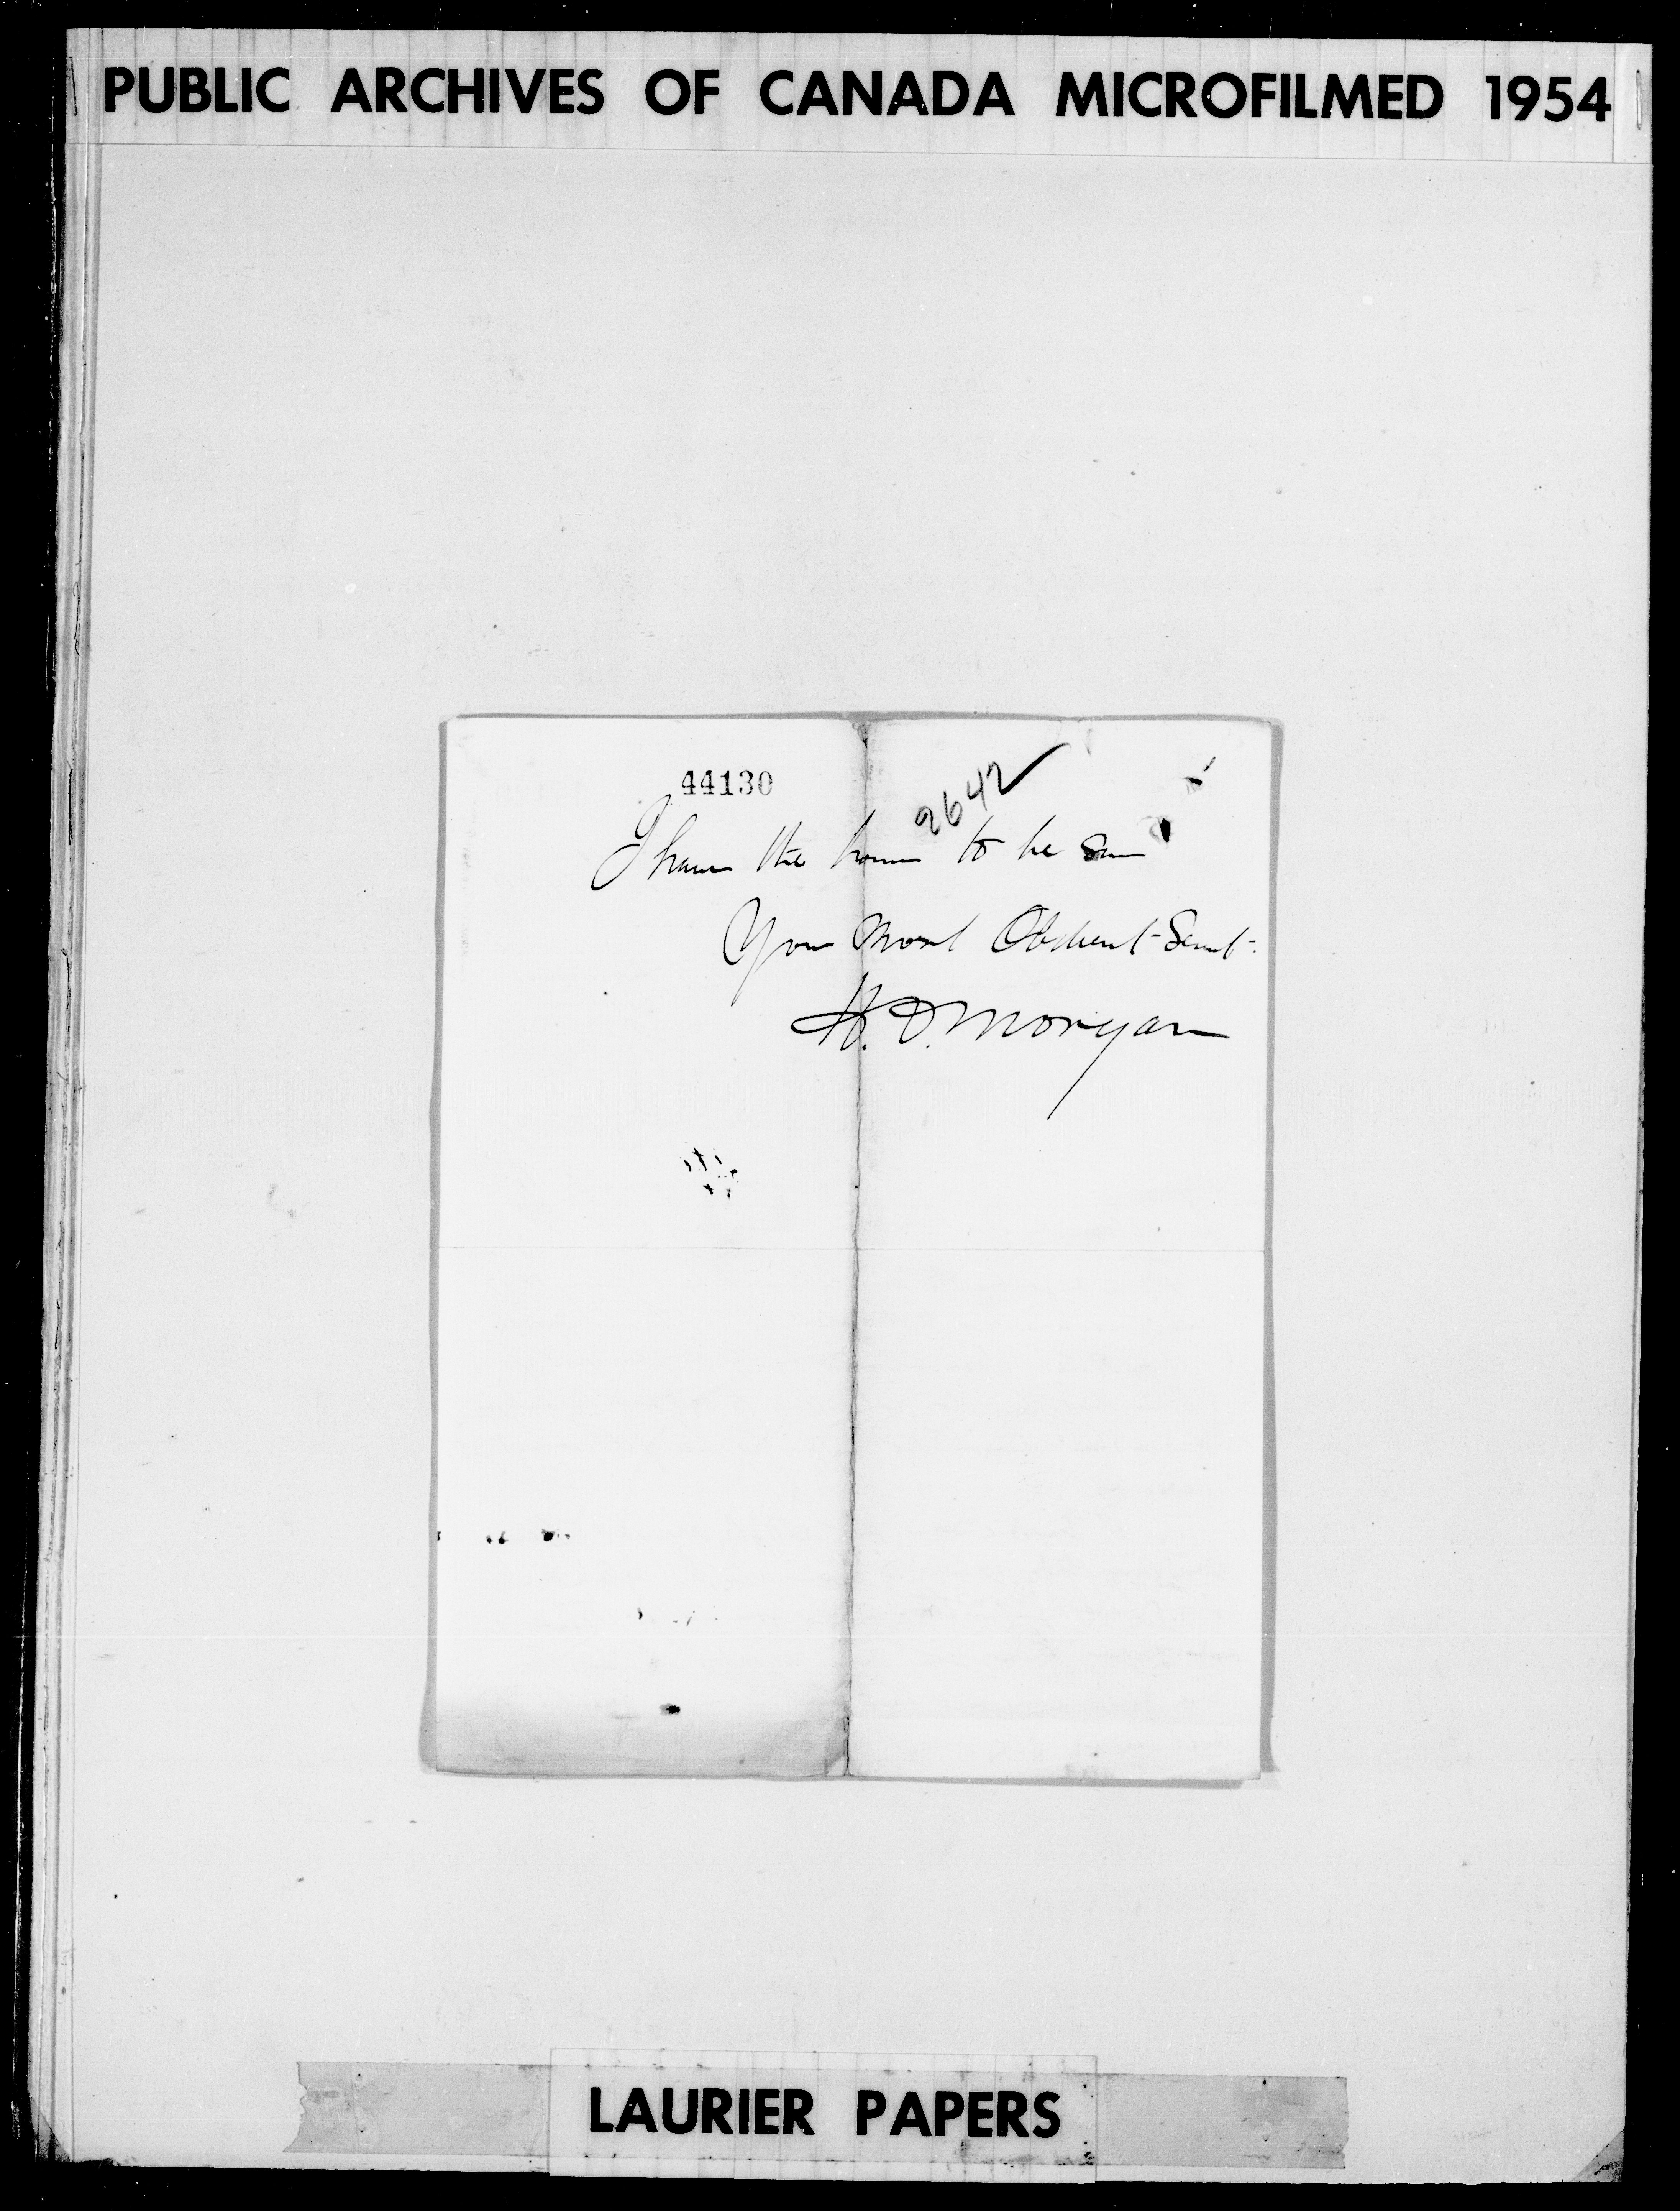 PUBLIC ARCHIVES OF CANADA MICROFILMED 1954
44130
2642
I have the honor to be Sir
Your Most Obedient Servt.
H. D. Morgan
LAURIER PAPERS